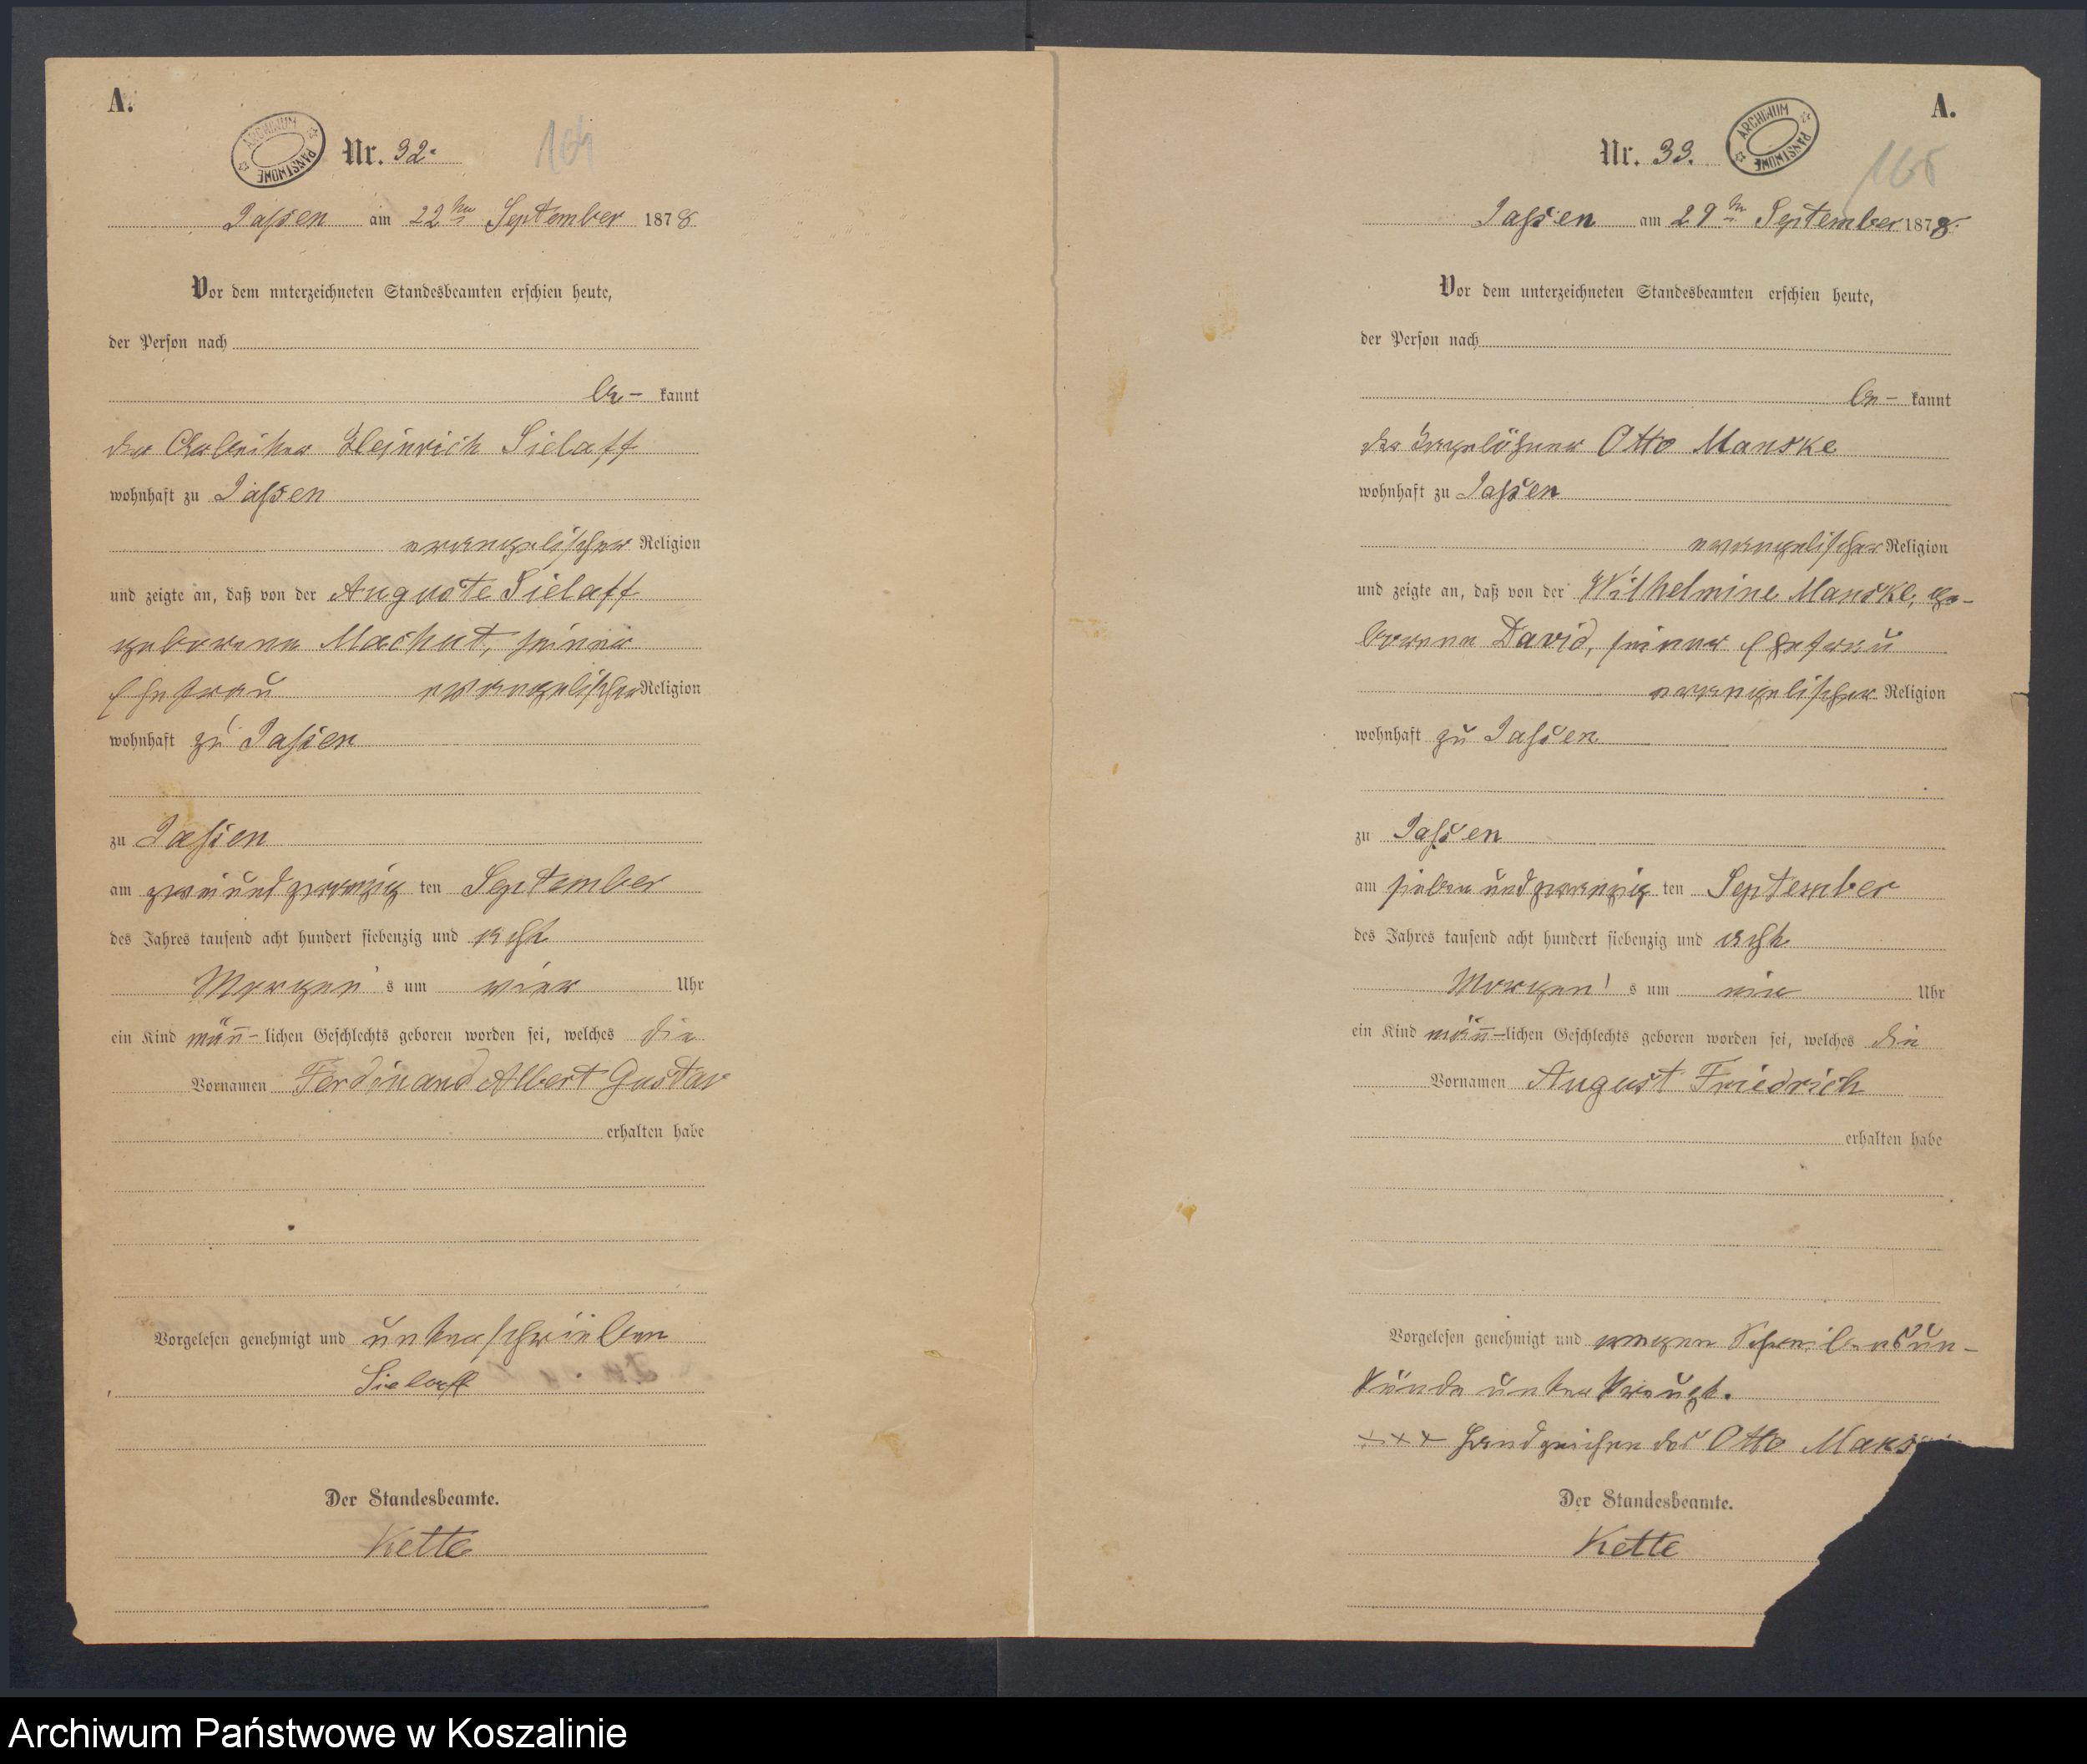 A.
ARCHIWUM PAŃSTWOWE
Nr. 32.
164
Jassen am 22ten September 1878
Vor dem unterzeichneten Standesbeamten erschien heute,
der Person nach
be- kannt
der Arbeiter Heinrich Sielaff
wohnhaft zu Jassen
evangelischer Religion
und zeigte an, daß von der Auguste Sielaff
geborene Machut, seiner
Ehefrau evangelischer Religion
wohnhaft zu Jassen
zu Jassen
am zweiundzwanzig ten September
des Jahres tausend acht hundert siebenzig und acht
Morgen s um vier Uhr
ein Kind män̄- lichen Geschlechts geboren worden sei, welches die
Vornamen Ferdinand Albert Gustav
erhalten habe
Vorgelesen genehmigt und unterschrieben
Sielaff
Der Standesbeamte.
Kette
A.
ARCHIWUM PAŃSTWOWE
Nr. 33.
165
Jassen am 29ten September 1878.
Vor dem unterzeichneten Standesbeamten erschien heute,
der Person nach
be- kannt
der Tagelöhner Otto Manske
wohnhaft zu Jassen
evangelischer Religion
und zeigte an, daß von der Wilhelmine Manske, ge-
borene David, seiner Ehefrau
evangelischer Religion
wohnhaft zu Jassen
zu Jassen
am sieben und zwanzig ten September
des Jahres tausend acht hundert siebenzig und acht
Morgen s um Uhr
ein Kind män̄- lichen Geschlechts geboren worden sei, welches die
Vornamen August Friedrich
erhalten habe
Vorgelesen genehmigt und wegen Schreibensun-
kunde unterkreuzt.
+++ Handzeichen des Otto Manske
Der Standesbeamte.
Kette
Archiwum Państwowe w Koszalinie